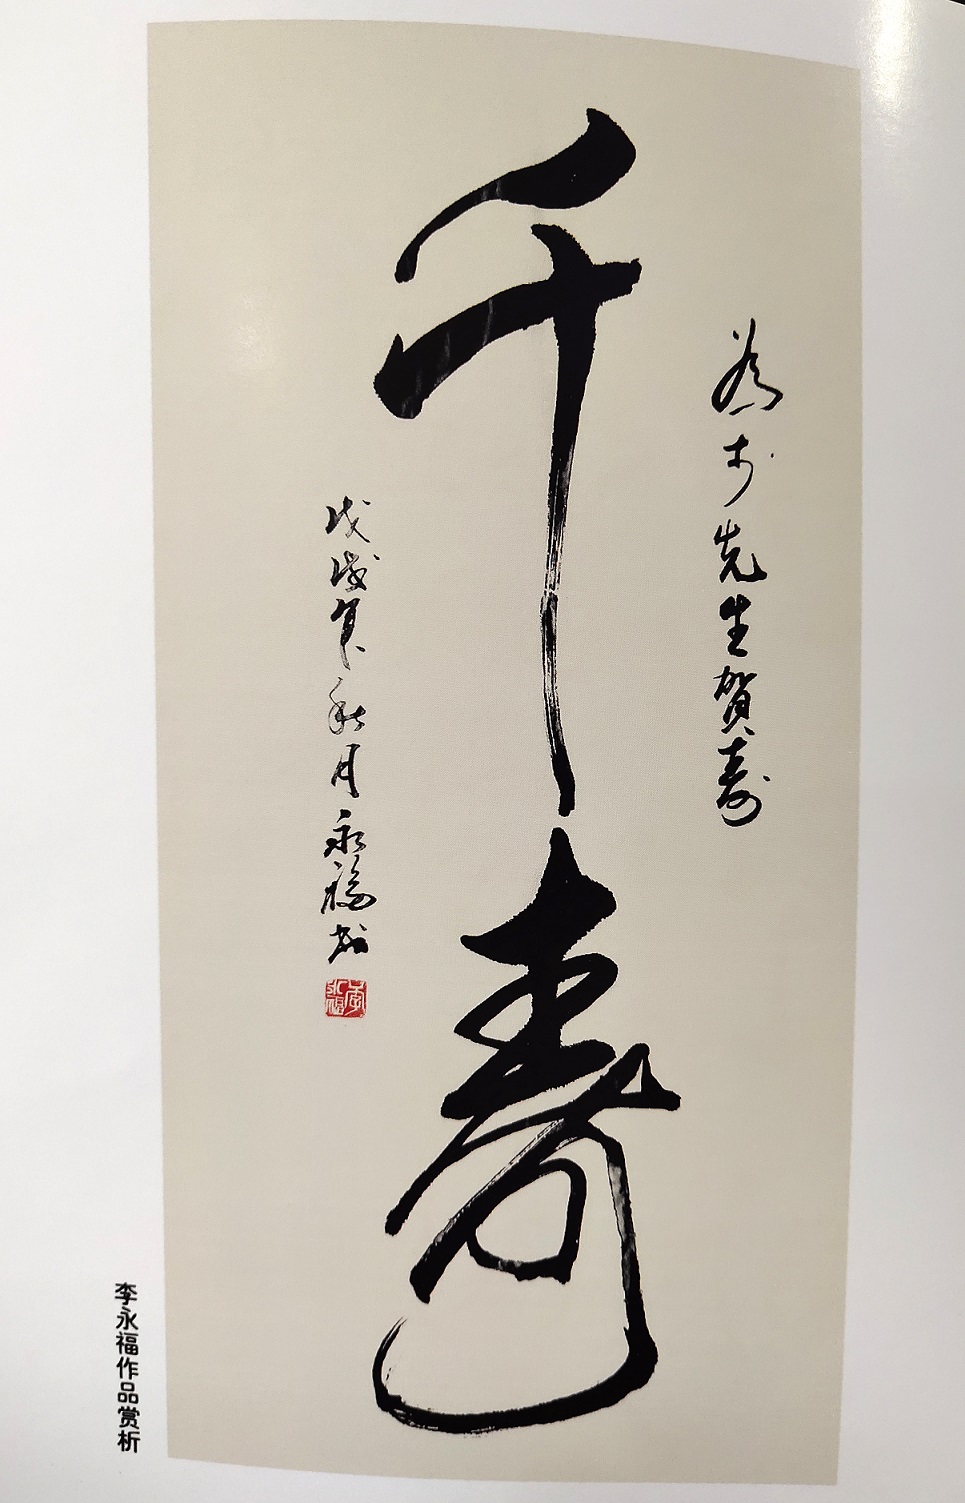 為先生賀寿
千寿
戊戌年秋月永福书
李永福
李永福作品赏析